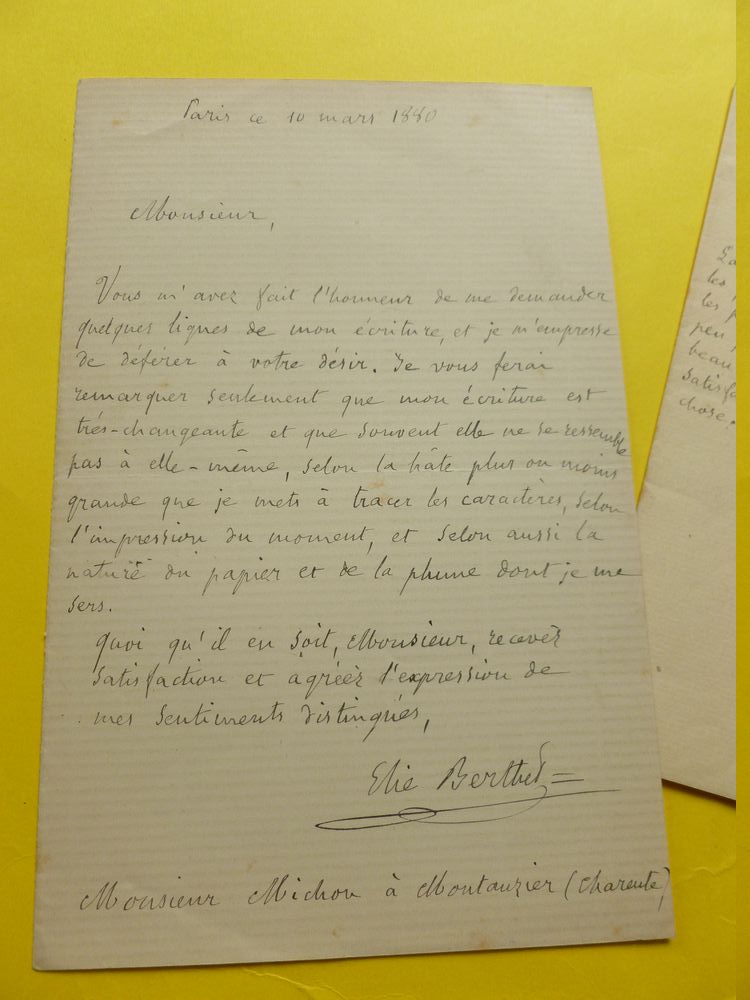 Paris ce 10 mars 1880
Monsieur,
Vous m'avez fait l'honneur de me demander
quelques lignes de mon écriture, et je m'empresse
de déférer à votre désir. Je vous ferai
remarquer seulement que mon écriture est
très-changeante et que souvent elle ne se ressemble
pas à elle-même, selon la hâte plus ou moins
grande que je mets à tracer les caractères, selon
l'impression du moment, et selon aussi la
nature du papier et de la plume dont je me
sers.
Quoi qu'il en soit, Monsieur, recevez
satisfaction et agréez l'expression de
mes sentiments distingués,
Elie Berthet
Monsieur Michon à Montauzier (Charente)
les
les
peu
beau
chose.